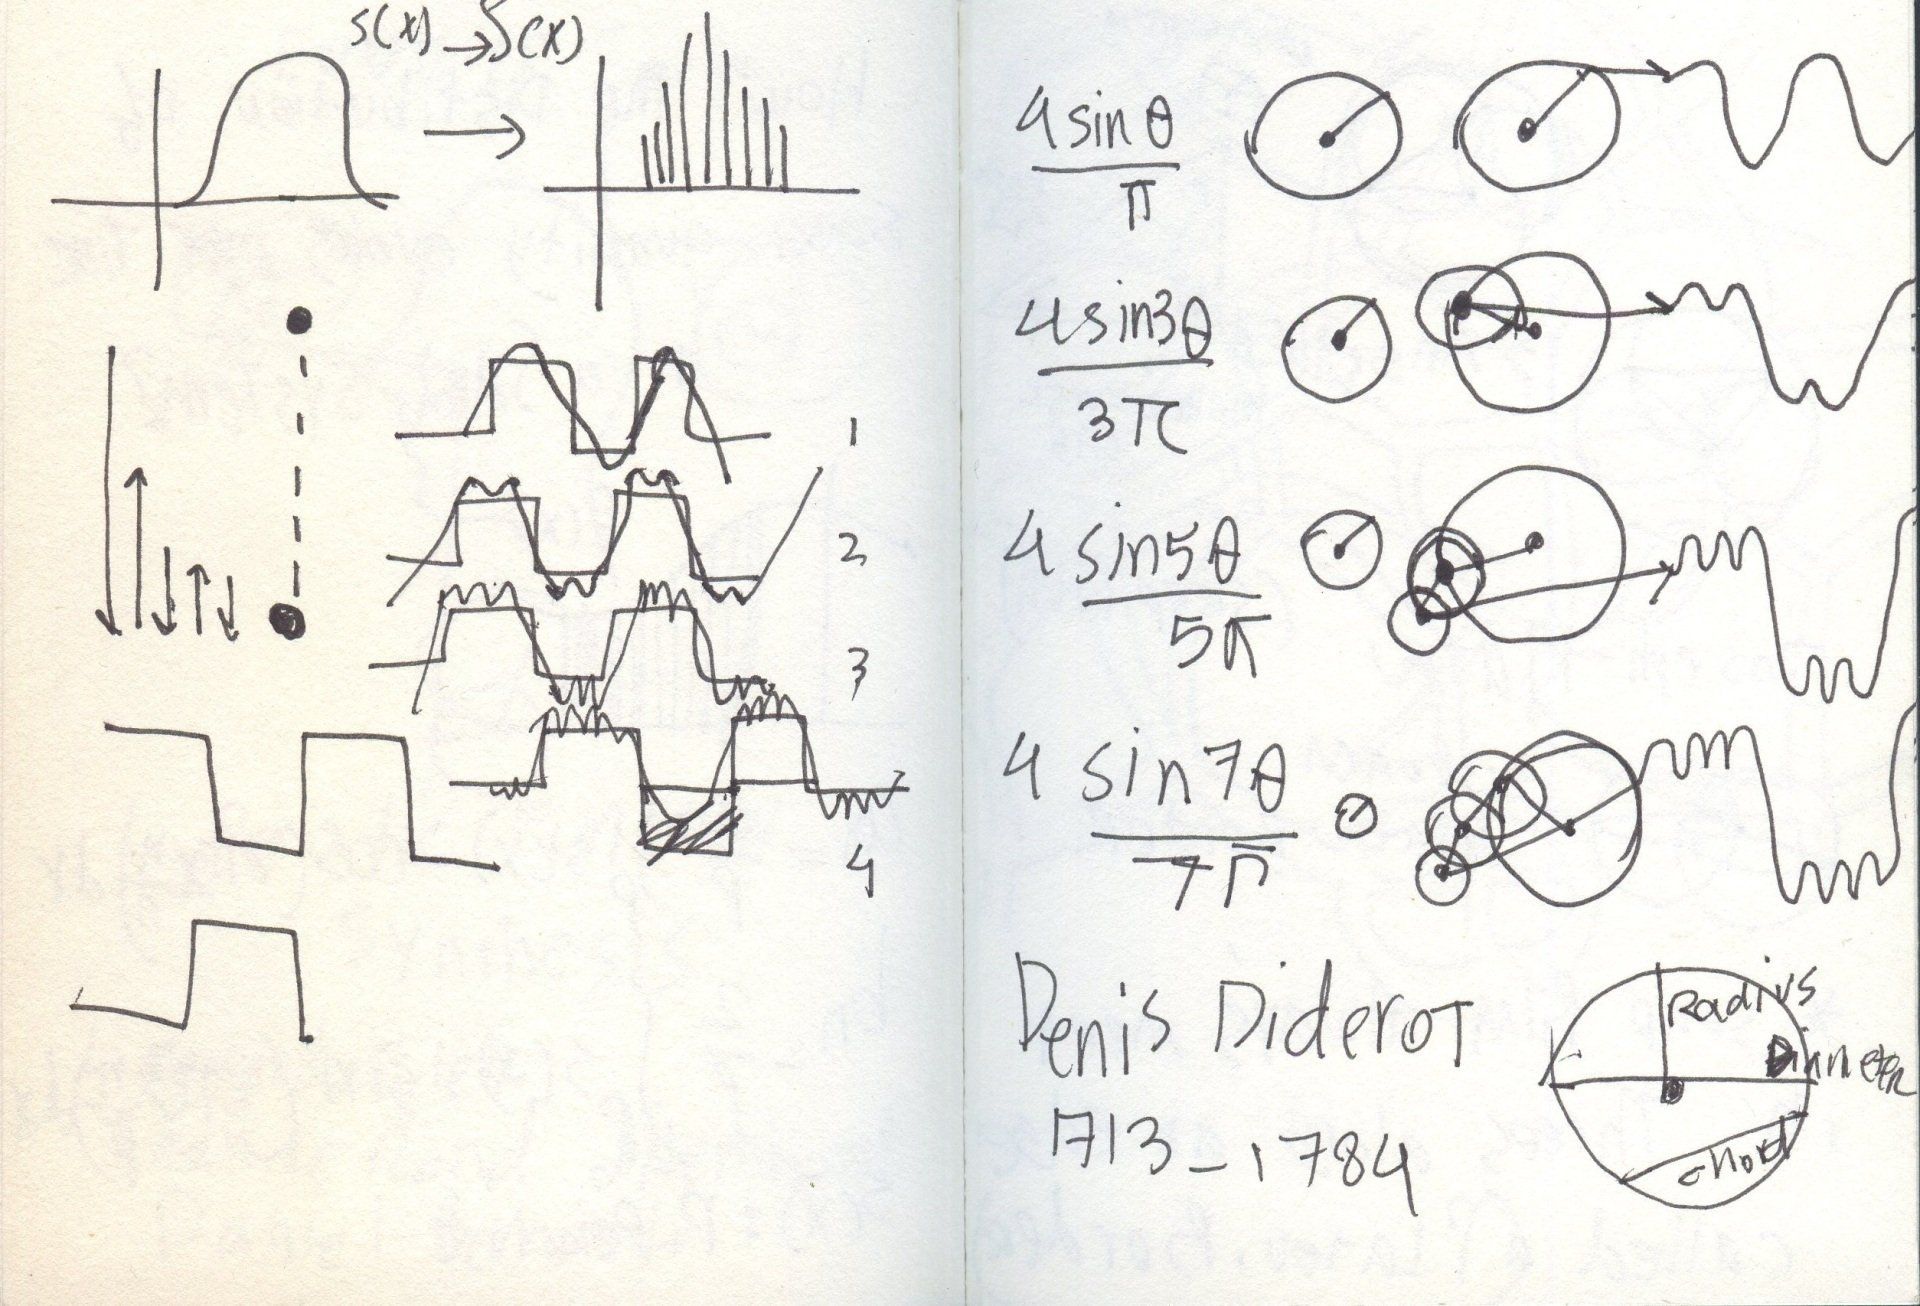 S(x) → S(x)
1
2
3
4
4 sin θ
π
4 sin3θ
3π
4 sin5θ
5π
4 sin7θ
7π
Denis Diderot
1713-1784
Radius
Diameter
chord